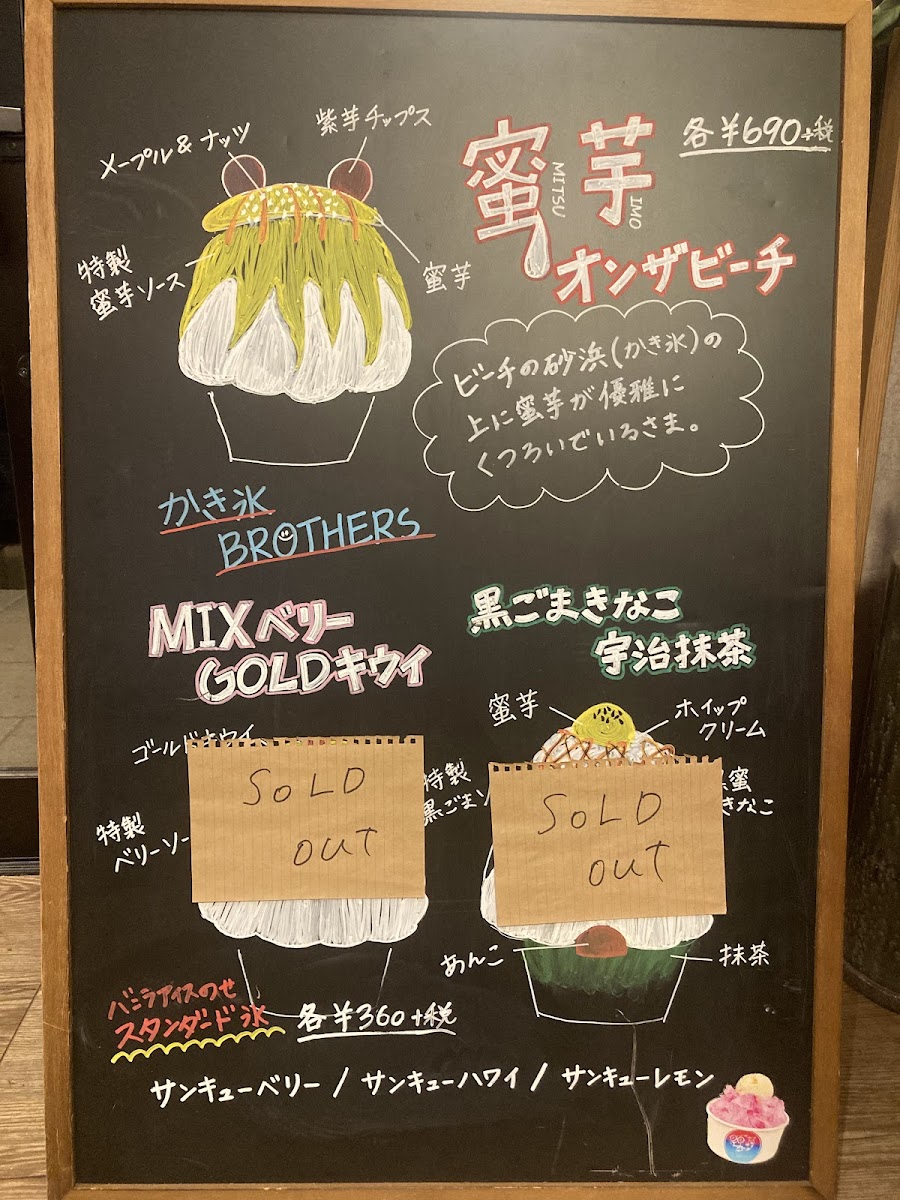 メープル&ナッツ
紫芋チップス
特製
蜜芋ソース
蜜芋
蜜芋
MITSU
IMO
オンザビーチ
各¥690+税
ビーチの砂浜(かき氷)の
上に蜜芋が優雅に
くつろいでいるさま。
かき氷
BROTHERS
MIXベリー
GOLDキウイ
ゴールドキウイ
特製
ベリーソー
SOLD
OUT
黒ごまきなこ
宇治抹茶
蜜芋
ホイップ
クリーム
特製
黒ごまソ
黒蜜
きなこ
SOLD
OUT
あんこ
抹茶
バニラアイスのせ
スタンダード氷
各¥360+税
サンキューベリー/サンキューハワイ/サンキューレモン